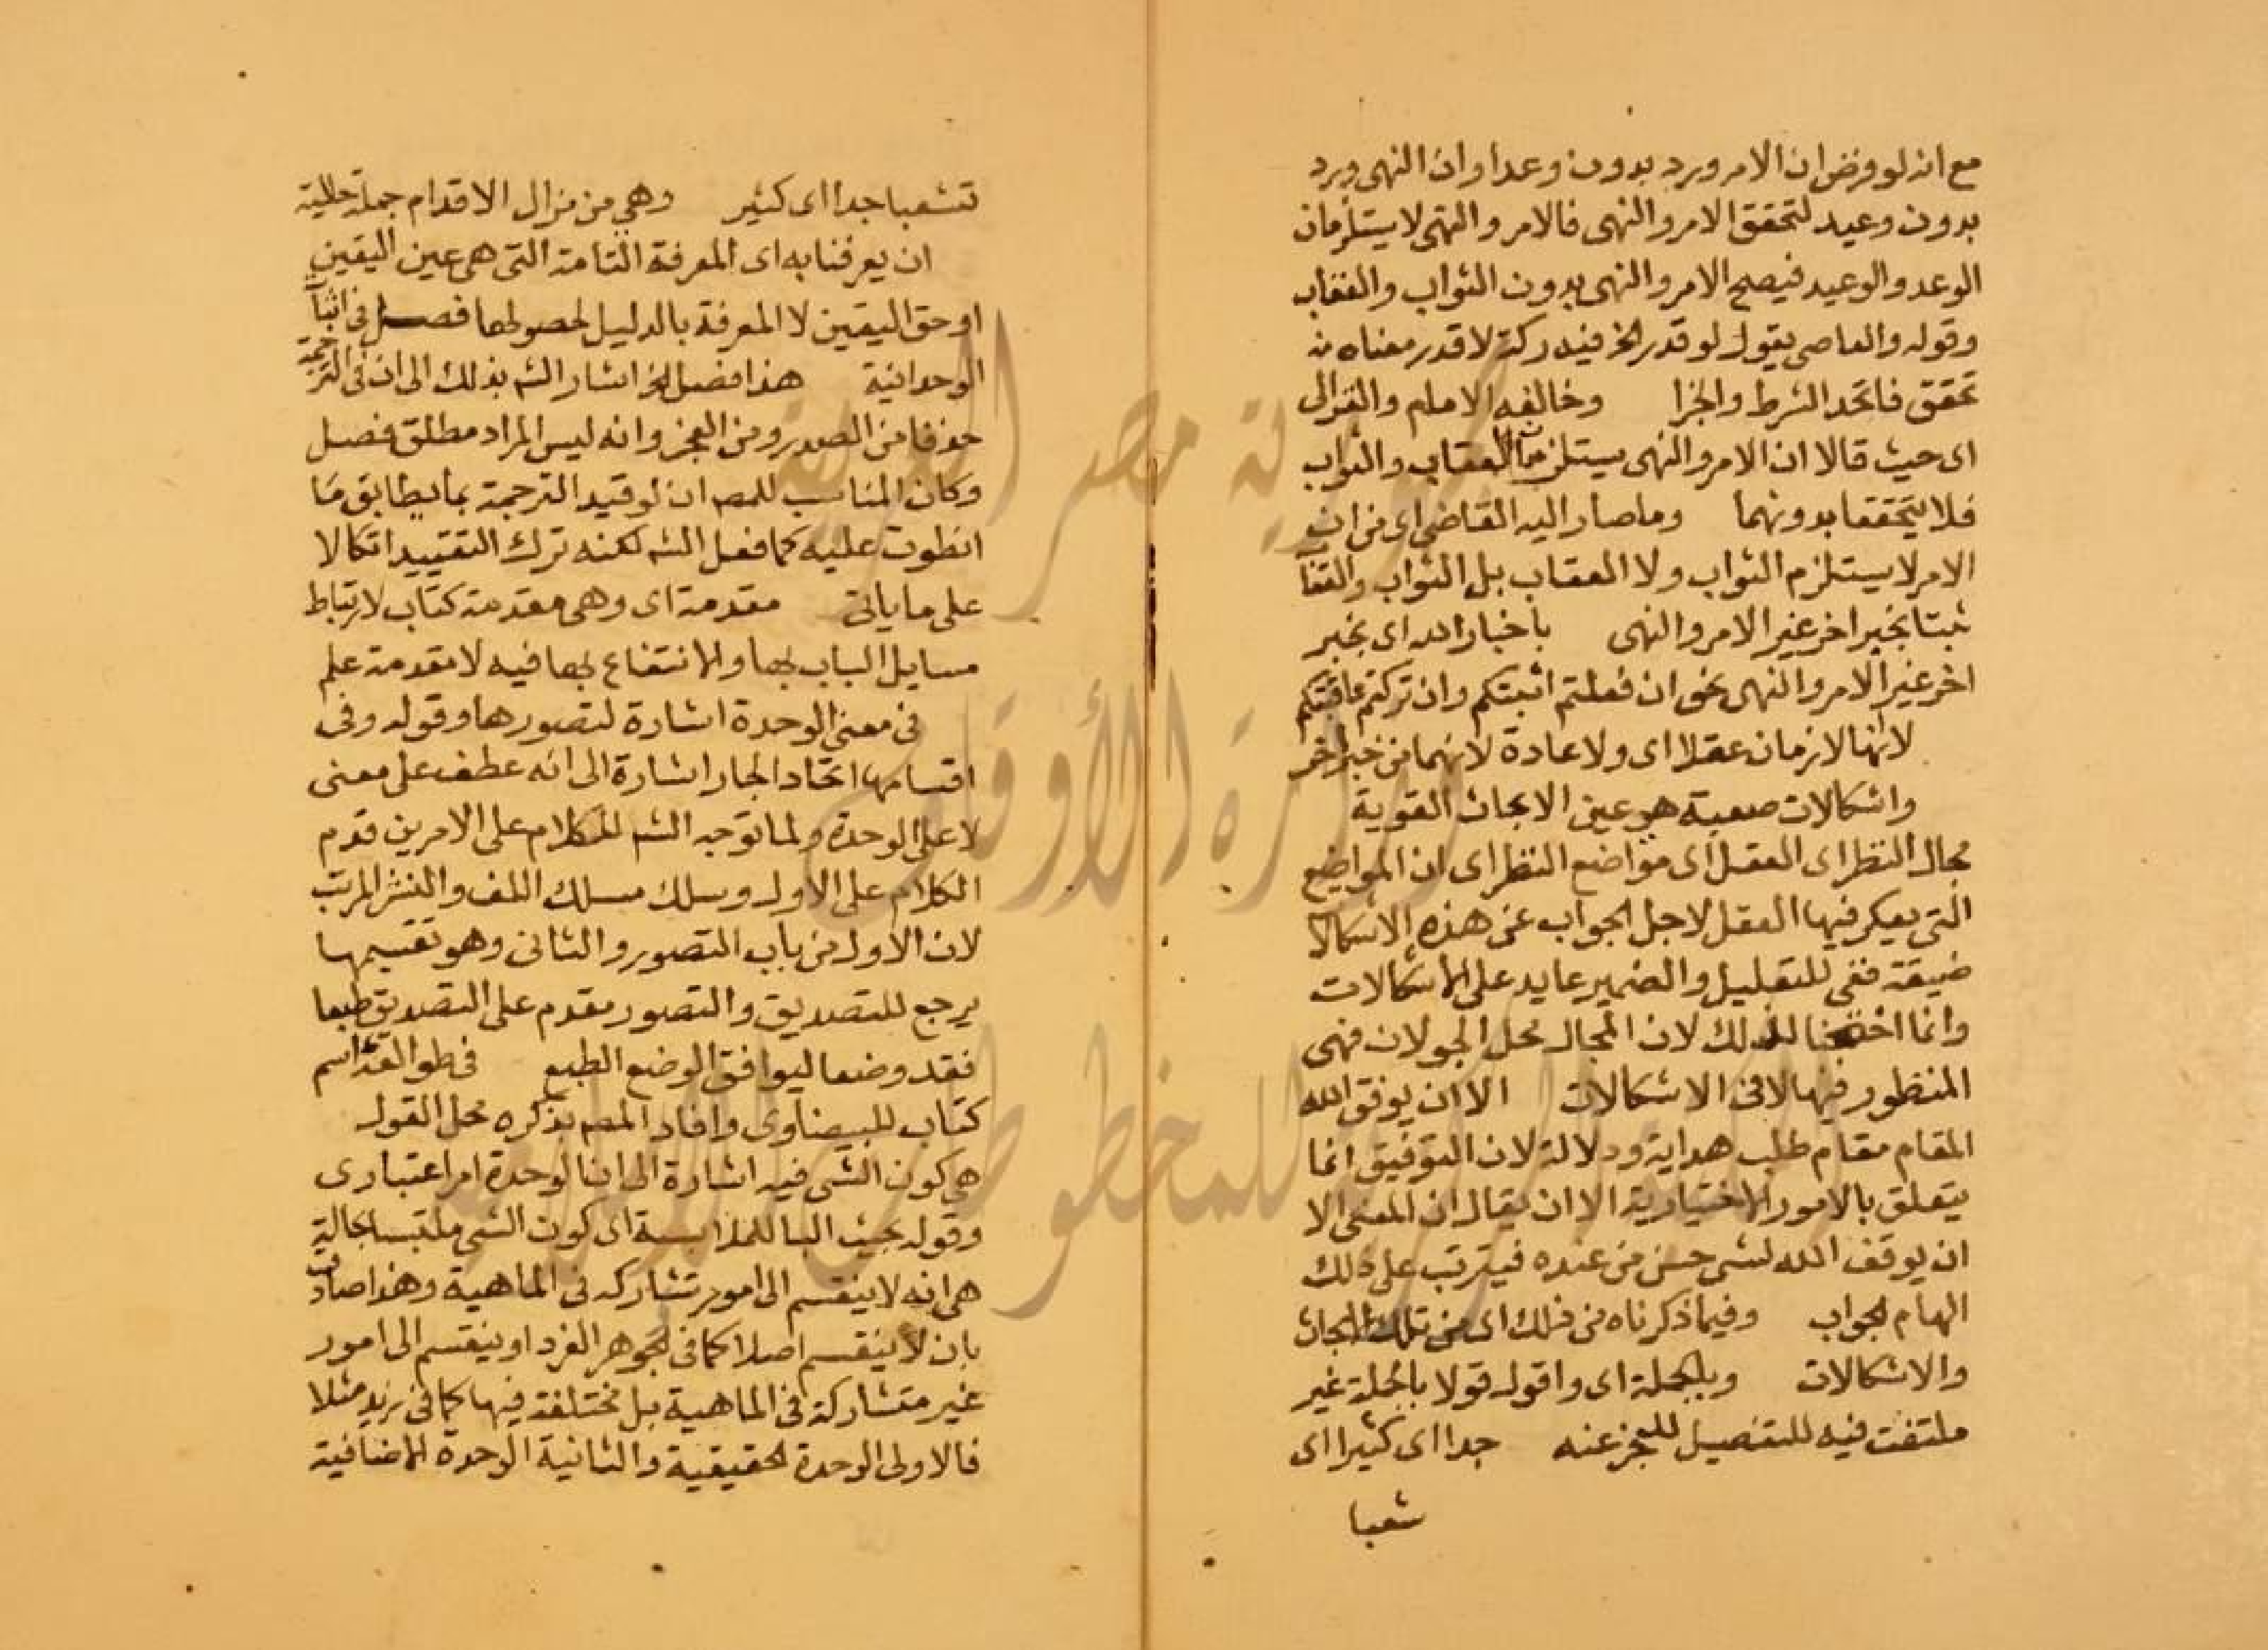 مع انه لو فرض ان الامر ورد بدون وعد او ان النهى ورد
بدون وعيد لتحقق الامر والنهى فالامر والنهى لا يستلزمان
الوعد والوعيد فيصح الامر والنهى بدون الثواب والعقاب
وقوله والعاصى يقول لو قدر الخ فيه ركة لا قدر معناه
تحقق فاتحد الشرط والجزا وخالفه الامام والغزالى
اى حيث قالا ان الامر والنهى يستلزمان العقاب والثواب
فلا يتحققا بدونهما وما صار اليه القاضى اى من ان
الامر لا يستلزم الثواب ولا العقاب بل الثواب والعقا
ثبتا بخبر اخر غير الامر والنهى باخبار الله اى بخبر
اخر غير الامر والنهى نحو ان فعلتم اثبتكم وان تركتم عاقبتكم
لا انهما لازمان عقلا اى ولا عادة لانهما من خبر اخر
واشكالات صعبة هو عين الابحاث القوية
مجال النظر اى العقل اى مواضع النظر اى ان المواضع
التى يفكر فيها العقل لاجل الجواب عن هذه الاشكالا
ضيقة ففى للتعليل والضمير عايد على الاشكالات
وانما احتجنا لذلك لان المجال محل الجولان فهى
المنظور فيها لا فى الاشكالات الا ان يوفق الله
المقام مقام طلب هداية ودلالة لان التوفيق انما
يتعلق بالامور الاختيارية الا ان يقال ان المعنى الا
ان يوقف الله لشى حسن من عنده فيترتب على ذلك
الهام الجواب وفيما ذكرناه من ذلك اى من تلك الابحاث
والاشكالات وبالجملة اى واقول قولا بالجملة غير
ملتفت فيه للتفصيل للعجز عنه جدا اى كثيرا اى
شعبا
تتشعبا جدا اى كثير وهى من مزال الاقدام جملة حالية
ان يعرفنا به اى المعرفة التامة التى هى عين اليقين
او حق اليقين لا المعرفة بالدليل لحصولها فصل فى اثبا
الوحدانية هذا فصل الخ اشار الشه بذلك الى ان فى الترجمة
حذفا من الصدر ومن العجز وانه ليس المراد مطلق فصل
وكان المناسب للمص ان لو قيد الترجمة بما يطابق ما
انطوت عليه كما فعل الشه لكنه ترك التقييد اتكالا
على ما ياتى مقدمة اى وهى مقدمة كتاب لارتباط
مسايل الباب بها والانتفاع بها فيه لا مقدمة علم
فى معنى الوحدة اشارة لتصورها وقوله وفى
اقسامها اتحاد الجار اشارة الى انه عطف على معنى
لا على الوحدة ولما توجه الشه للكلام على الامرين قدم
الكلام على الاول وسلك مسلك اللف والنشر المرتب
لان الاول من باب التصور والثانى وهو تقسيمها
يرجع للتصديق والتصور مقدم على التصديق طبعا
فقدم وضعا ليوافق الوضع الطبع فى طوالعه اسم
كتاب للبيضاوى وافاد المص بذكره محل القول
هى كون الشى فيه اشارة الى ان الوحدة امر اعتبارى
وقوله بحيث البا للملابسة اى كون الشى ملتبسا بحالة
هى انه لا ينقسم الى امور تشاركه فى الماهية وهذا صادق
بان لا ينقسم اصلا كما فى الجوهر الفرد او ينقسم الى امور
غير متشاركة فى الماهية بل مختلفة فيها كما فى زيد مثلا
فالاولى الوحدة الحقيقية والثانية الوحدة الاضافية